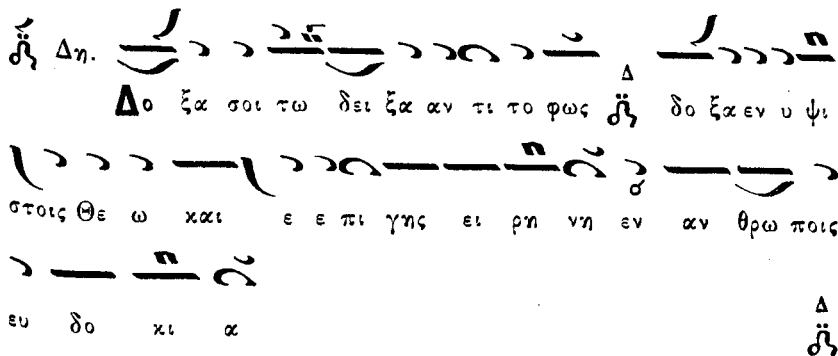 Δη. Δο ξα σοι τω δει ξα αν τι το φως Δ δο ξα εν υ ψι
στοις Θε ω και ε ε πι γης ει ρη νη εν αν θρω ποις
ευ δο κι α Δ